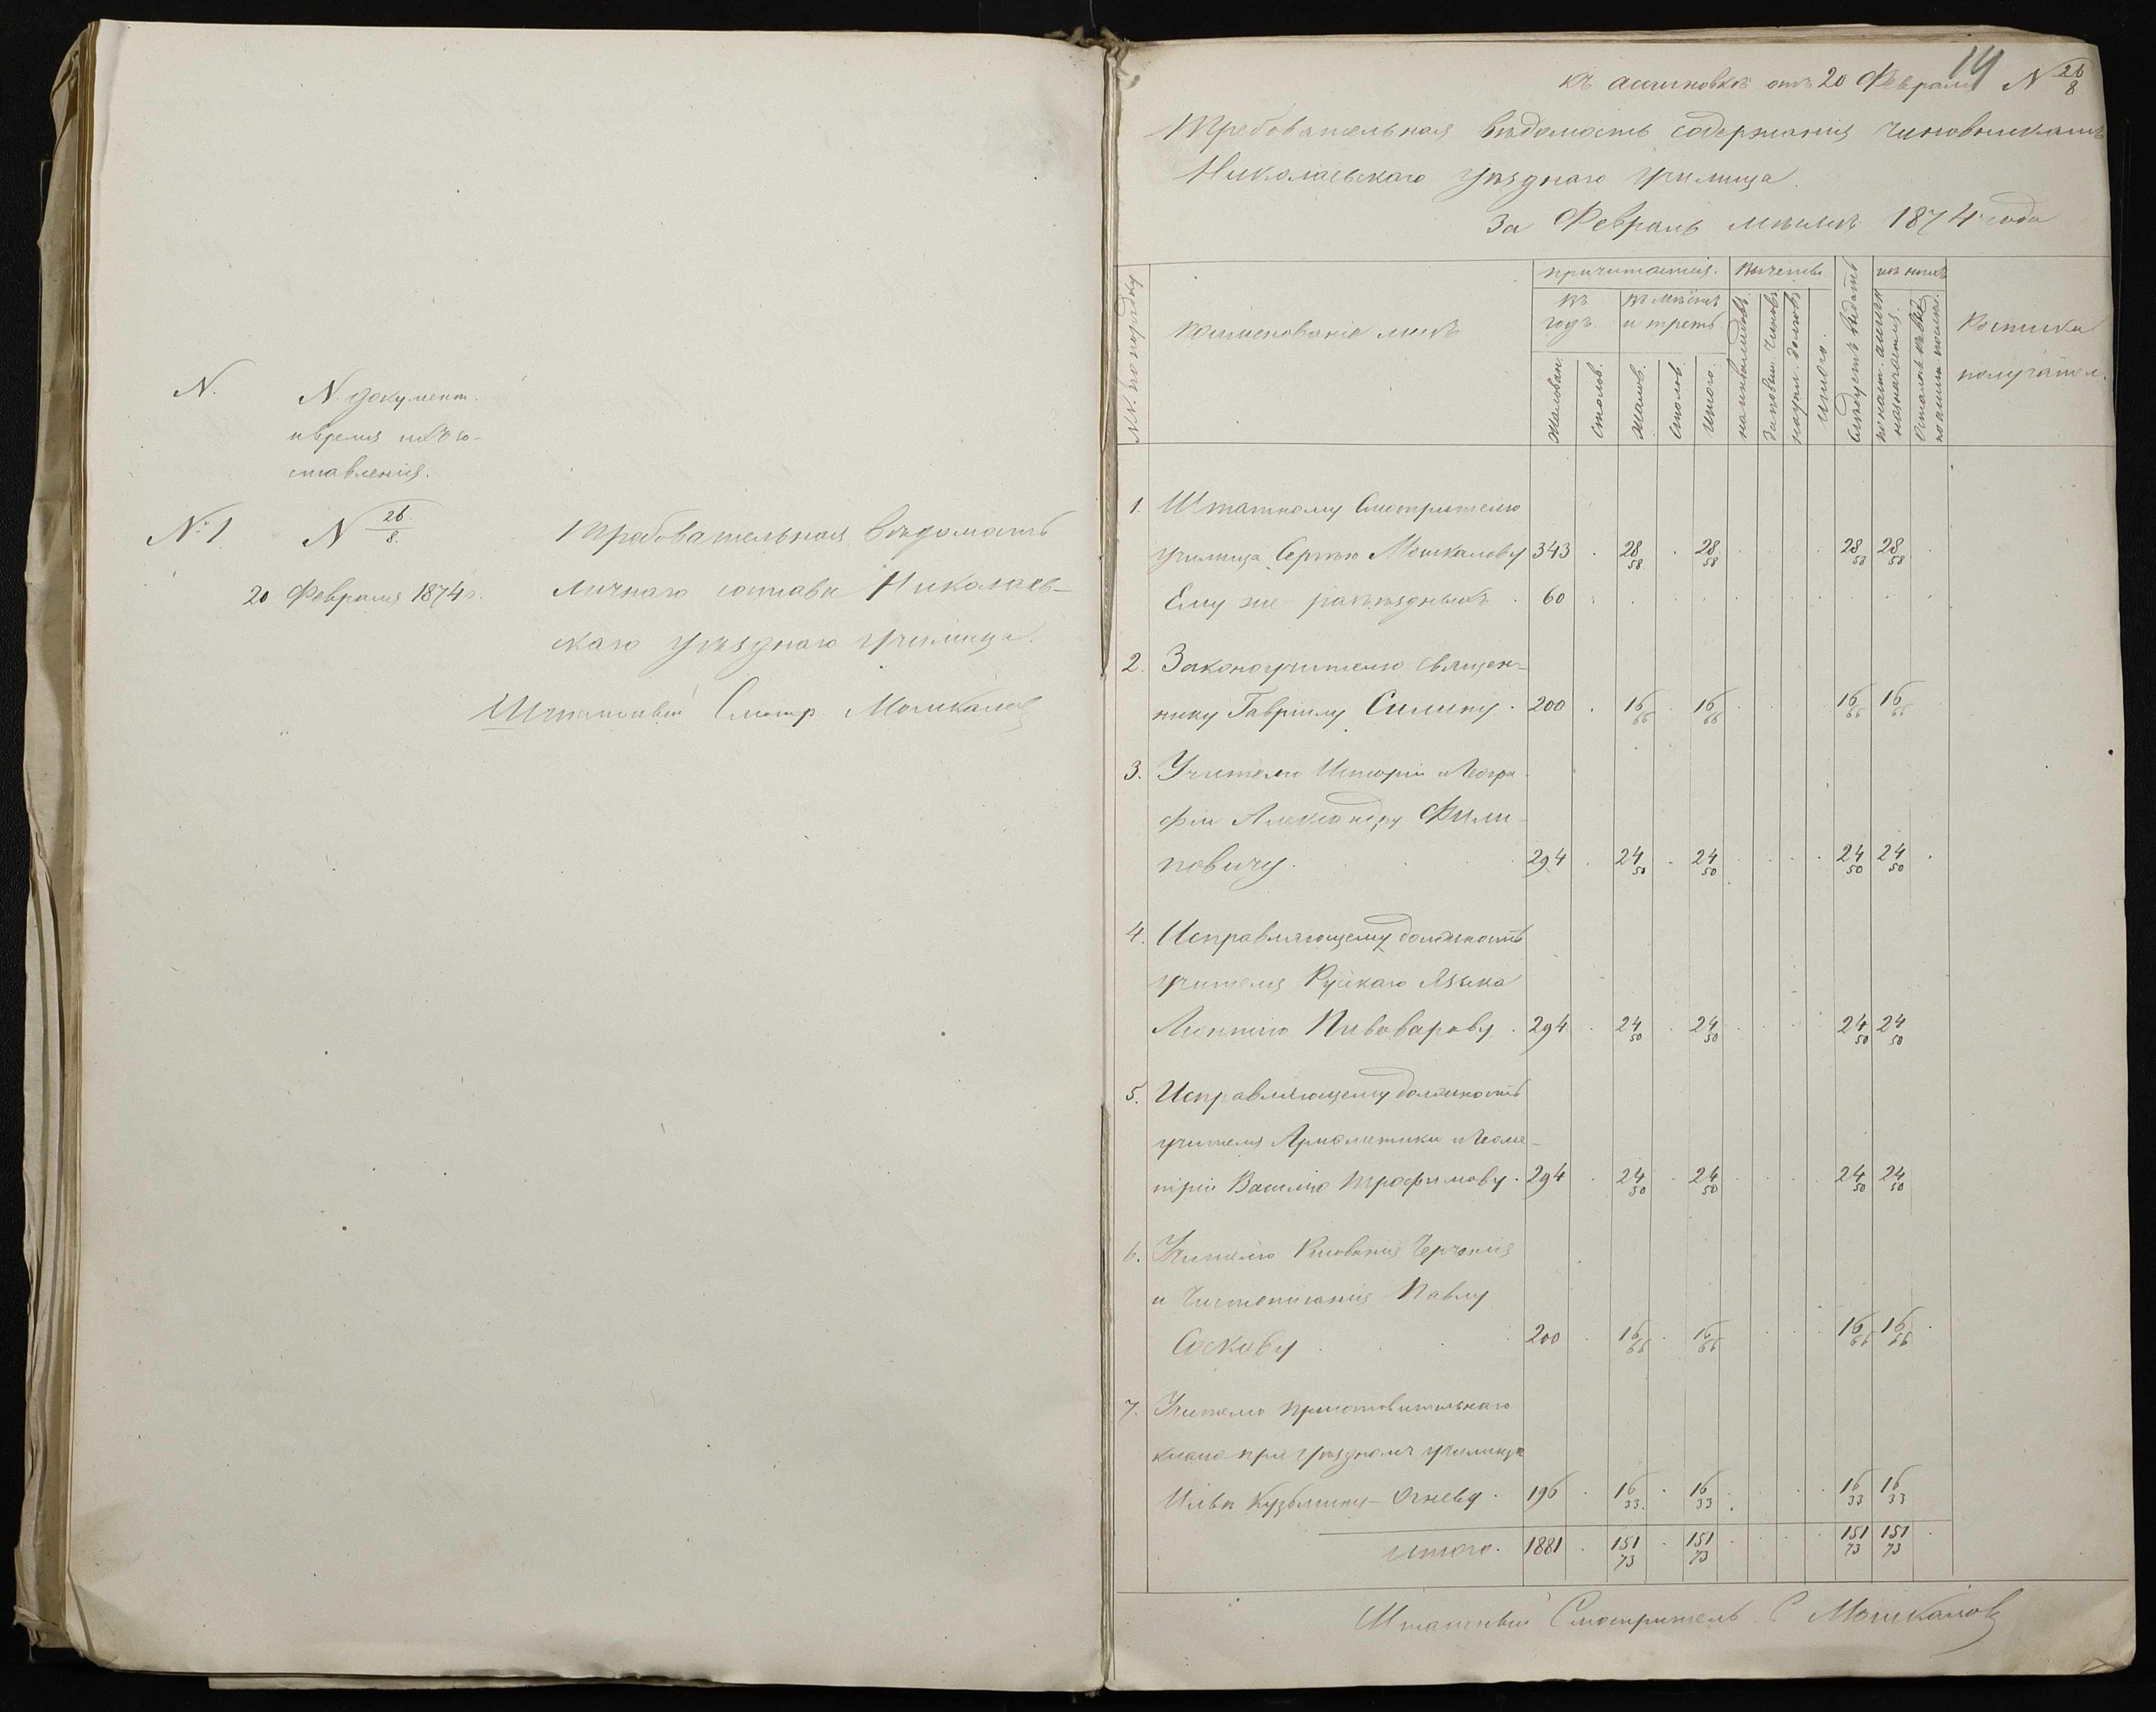 N.
N. документ.
и время ихъ со-
ставленія.
№ 1
N 26/8.
20 Февраля 1874 г.
Требовательная вѣдомость
личнаго состава Николаев-
скаго уѣзднаго училища.
Штатный Смотр. Мошкаловъ
14
къ ассигновкѣ отъ 20 Февраля N 26/8
Требовательная вѣдомость содержанія чиновникамъ
Николаевскаго уѣзднаго училища.
За Февраль мѣсяцъ 1874 года
NN. по порядку
Наименованіе лицъ
причитается.
въ годъ.
въ мѣсяцъ и треть.
Жалован.
столов.
жалов.
столов.
итого.
Вычетъ.
на инвалидовъ.
за повыш. чиновъ
на упл. долговъ
итого.
Слѣдуетъ выдать
изъ нихъ
по наст. ассигн. назначается.
Росписка
получател.
1. Штатному Смотрителю
училища Сергѣю Мошкалову 343 . 28 58 . 28 58 . . . . 28 58 28 58 .
Ему же разъѣздныхъ . 60 . . . . . . . . . . .
2. Законоучителю священ-
нику Гавріилу Силину . 200 . 16 66 . 16 66 . . . . 16 66 16 66
3. Учителю Исторіи и Геогра-
фіи Александру Фили-
повичу . . . . 294 . 24 50 . 24 50 . . . . 24 50 24 50 .
4. Исправляющему должность
учителя Рускаго Языка
Леонтію Пивоварову . 294 . 24 50 . 24 50 . . . . 24 50 24 50
5. Исправляющему должность
учителя Ариѳметики и Геоме-
тріи Василію Трофимову . 294 . 24 50 . 24 50 . . . . 24 50 24 50
6. Учителю Рисованія Черченія
и Чистописанія Павлу
Соскову . . . 200 . 16 66 . 16 66 . . . 16 66 16 66 .
7. Учителю приготовительнаго
класа при уѣздномъ училищѣ
Ильѣ Кузьмину-Огневу . 196 . 16 33. . 16 33 . . . . 16 33 16 33
итого. 1881 . 151 73 . 151 73 . . . . 151 73 151 73 .
Штатный Смотритель С Мошкаловъ